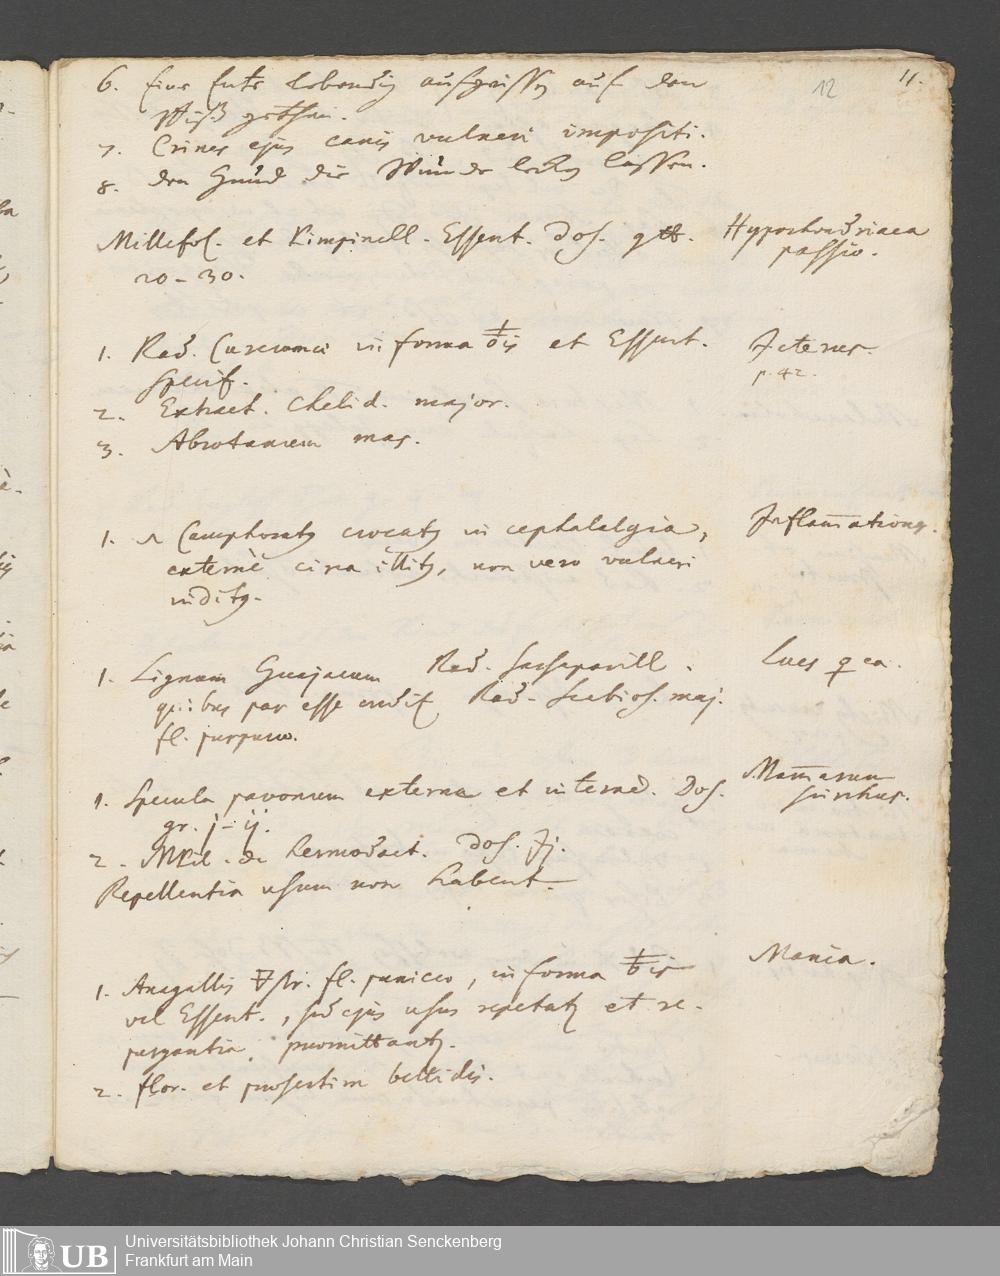 12 11.
6. Eine lebendig aufgerissen auf den
Biß
7. Crines ejus canis vulneri impositi.
8. den Hund die Wunde lecken lassen.
Millefol. et Pimpinell. Essent. Dos. gtt.
20-30.
Hypochondriaca
passio.
1. Rad. Curcumae in forma ♁is et Essent.
specif.
Icterus.
p. 42.
2. Extract. Chelid. major.
3. Abrotanum mas.
1. Camphoratus crocatus in cephalalgia,
externè circa illitus, non vero vulneri
inditus.
Inflam̅ationes.
1. Lignum Guajacum Rad. Sassaparill.
quibus par esse Rad. Scabios. maj.
fl. purpureo.
Lues
1. Specula pavonum externa et interned. Dos.
gr. j-ij.
Mam̅arum
scirrhus.
2. de Hermodact. Dos. ʒj.
Repellentia usum non habent.
1. Anagallis fl. puniceo, in forma ♁is
vel Essent., sed ejus usus repetatur et
purgantia, praemittantur.
Mania.
2. flor. et bellidis.
UB
Universitätsbibliothek Johann Christian Senckenberg
Frankfurt am Main